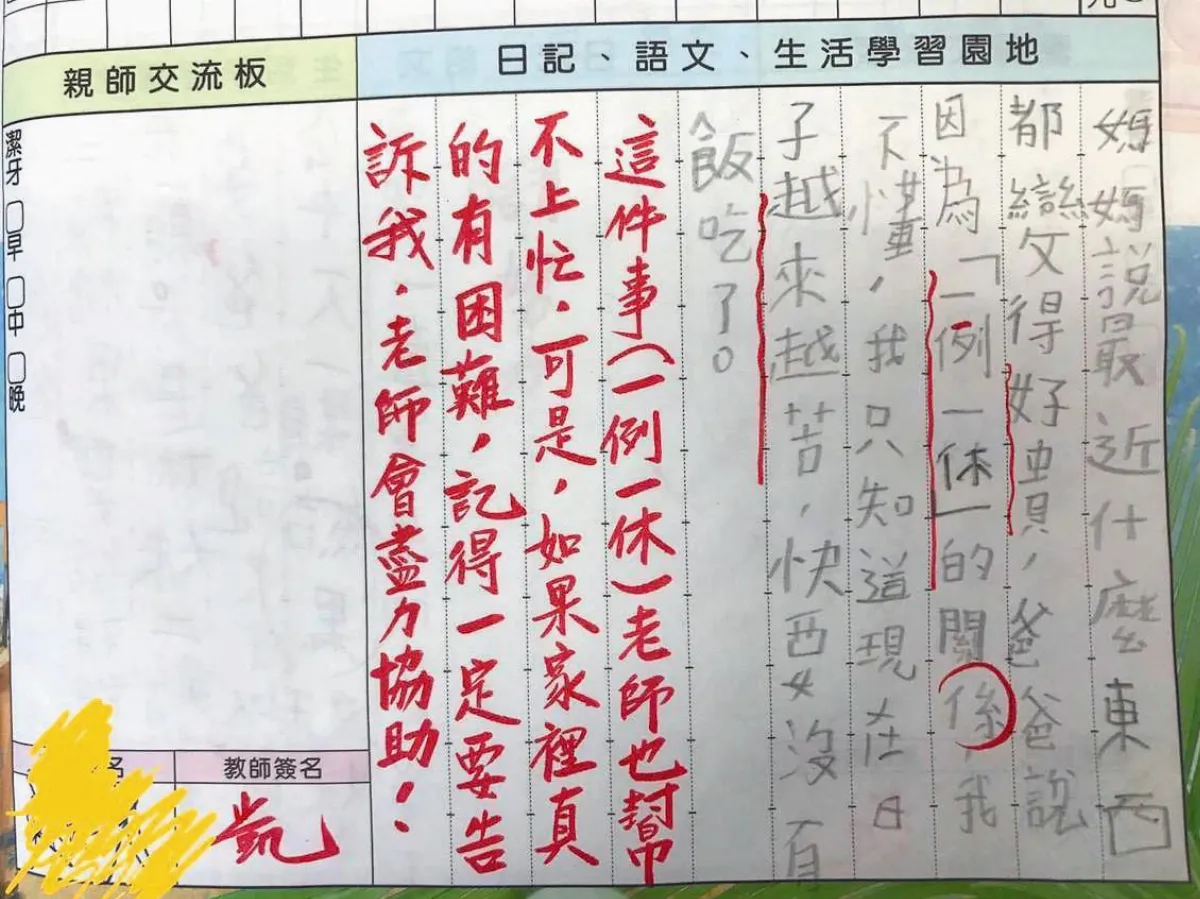 親師交流板
日記、語文、生活學習園地
媽媽說最近什麼東西
都變得好貴，爸爸說
因為「一例一休」的關係，我
不懂，我只知道現在日
子越來越苦，快要沒有
飯吃了。
這件事(一例一休)老師也幫
不上忙，可是，如果家裡真
的有困難，記得一定要告
訴我，老師會盡力協助！
潔牙 □早 □中 □晚
名
教師簽名
凱